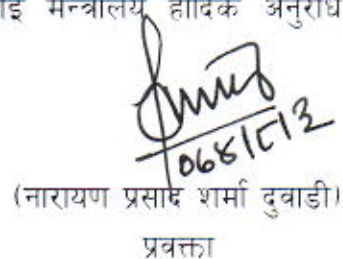 मन्त्रालय हार्दिक अनुरोध
(नारायण प्रसाद शर्मा दुवाडी)
प्रवक्ता